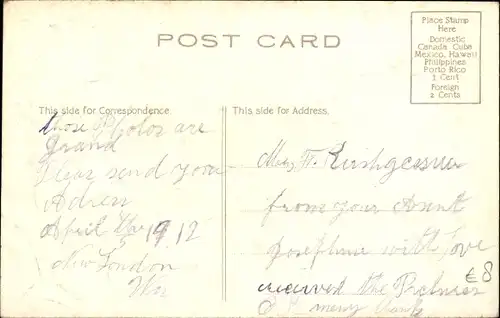 POST CARD
Place Stamp
Here
Domestic
Canada Cuba
Mexico, Hawaii
Philippines
Porto Rico
1 Cent
Foreign
2 Cents
This side for Correspondence.
those Photos are
grand
Pleas send your
Adress
April 1912
New London
This side for Address.
from your Aunt
Josephine with love
received the Pictures
many thanks
£8